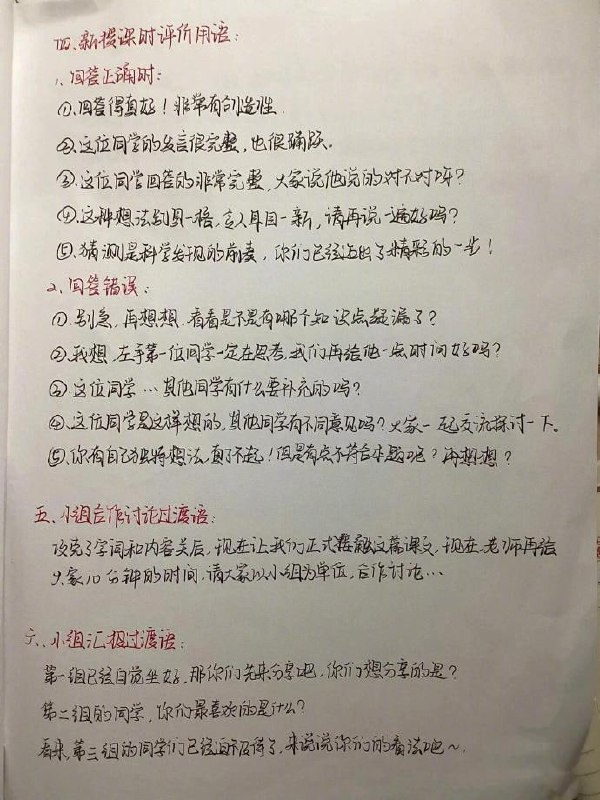 四、新授课时评价用语:
1、回答正确时:
①、回答得真好!非常有创造性.
②、这位同学的发言很完整,也很踊跃.
③、这位同学回答的非常完整,大家说他说的对不对呀?
④、这种想法别具一格,令人耳目一新,请再说一遍好吗?
⑤、猜测是科学发现的前奏,你们已经迈出了精彩的一步!
2、回答错误:
①、别急,再想想,看看是不是有哪个知识点疑漏了?
②、我想,左手第一位同学一定在思考,我们再给他一点时间好吗?
③、这位同学…其他同学有什么要补充的吗?
④、这位同学是这样想的,其他同学有不同意见吗?大家一起交流探讨一下.
⑤、你有自己独特想法,真了不起!但是有点不符合本题呢?再想想?
五、小组合作讨论过渡语:
攻克了字词和内容关后,现在让我们正式 这篇课文,现在,老师再给
大家10分钟的时间,请大家以小组为单位,合作讨论…
六、小组汇报过渡语:
第一组已经自觉坐好,那你们先来分享吧,你们想分享的是?
第二组的同学,你们最喜欢的是什么?
看来,第三组的同学们已经迫不及待了,来说说你们的看法吧~.